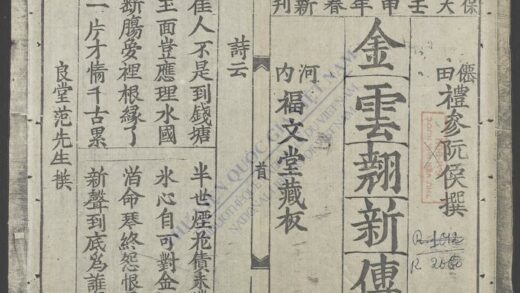 保大壬申年春新刊
僊田禮參阮侯撰
金雲翹新傳
河内福文堂藏板
首
詩云
佳人不是到錢塘
半世煙花債未
玉面豈應埋水國
氷心自可對金
斷膓夢裡根緣了
命琴終怨恨
一片才情千古累
新聲到底為誰
良堂范先生撰